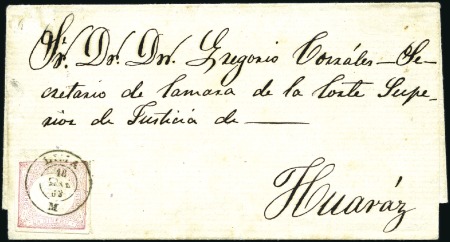 Sr. Dr. Dn. Gregorio Corzáles — Se-
cretario de Camara de la Corte Supe-
rior de Justicia de —
Huaráz
LIMA
18
63
M